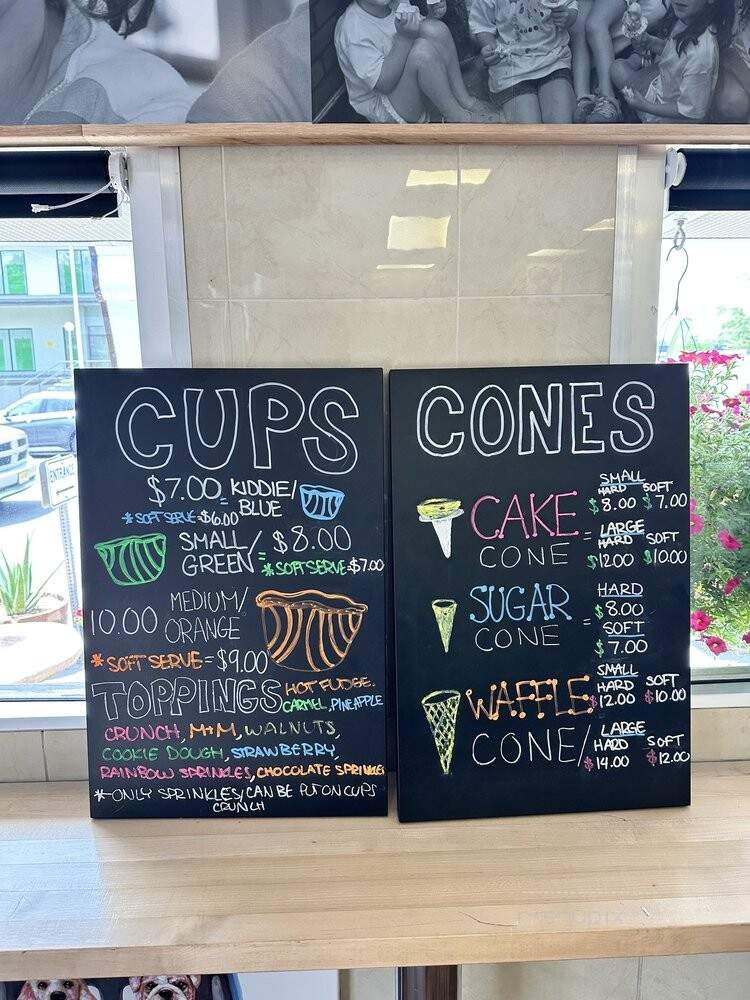 CUPS
$7.00 = KIDDIE/
BLUE
*SOFT SERVE-$6.00
SMALL/
GREEN = $8.00
*SOFT SERVE-$7.00
10.00 MEDIUM/
ORANGE
*SOFT SERVE=$9.00
TOPPINGS HOT FUDGE.
CARMEL, PINEAPPLE
CRUNCH, M+M, WALNUTS,
COOKIE DOUGH, STRAWBERRY,
RAINBOW SPRINKLES, CHOCOLATE SPRINKLES
*-ONLY SPRINKLES/CAN BE PUT ON CUPS
CRUNCH
CONES
CAKE
CONE =
SMALL
HARD SOFT
$8.00 $7.00
LARGE
HARD SOFT
$12.00 $10.00
SUGAR
CONE =
HARD
$8.00
SOFT
$7.00
WAFFLE
CONE/
SMALL
HARD SOFT
$12.00 $10.00
LARGE
HARD SOFT
$14.00 $12.00
ENTRANCE